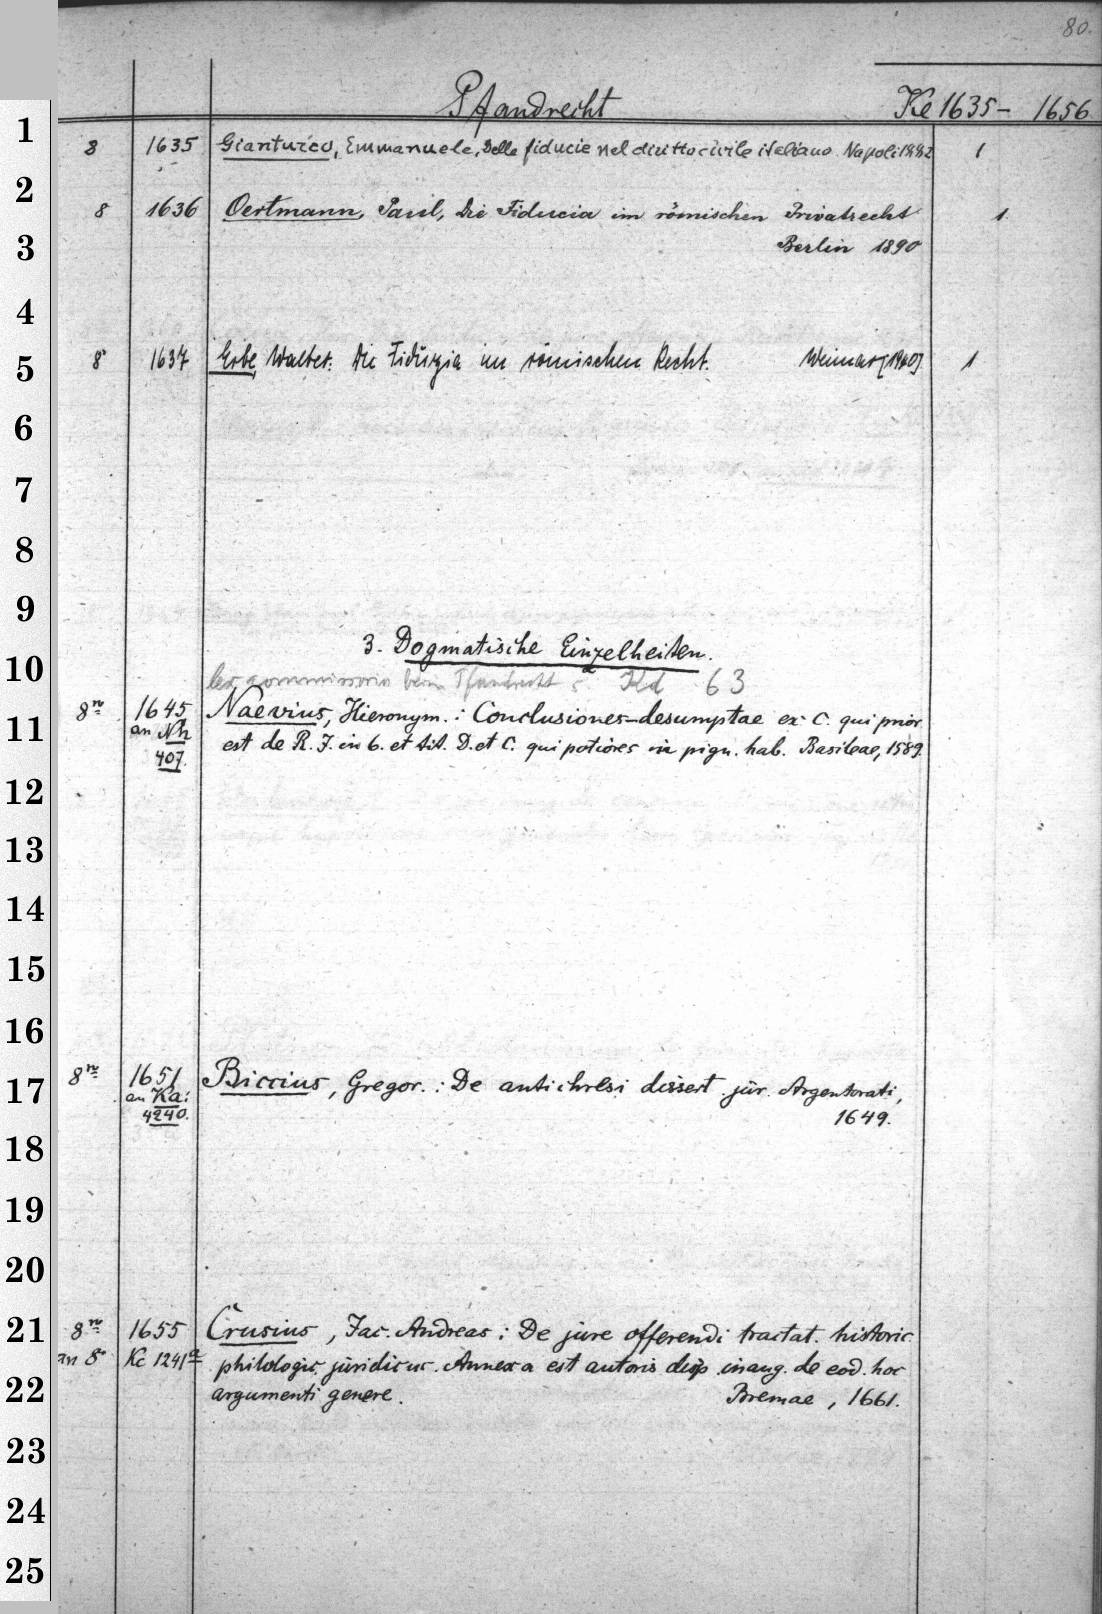 80.
Pfandrecht Ke 1635- 1656
1
8 1635 Gianturco, Emmanuele, Delle fiducie nel diritto civile italiano. Napoli 1882 1
2
8 1636 Oertmann, Paul, Die Fiducia im römischen Privatrecht 1
3
Berlin 1890
4
5
8° 1637 Erbe, Walter. Die Fiduzia im römischen Recht. Weimar [1940] 1
6
7
8
9
3. Dogmatische Einzelheiten.
10
lex commissoria beim Pfandrecht s. Kd 63
11
8ⁿᵒ 1645 Naevius, Hieronym.: Conclusiones desumptae ex C. qui prior
an Nh est de R. J. in 6. et tit. D. et C. qui potiores in pign. hab. Basileae, 1589.
407.
12
13
14
15
16
17
8ⁿᵒ 1651 Biccius, Gregor.: De antichresi dissert. jur. Argentorati,
an Ka: 1649.
4240.
18
19
20
21
8ⁿᵒ 1655 Crusius, Jac. Andreas: De jure offerendi tractat. historic.
an 8° Kc 1241ª philologic. juridicus. Annexa est autoris disp. inaug. de eod. hoc
22
argumenti genere. Bremae, 1661.
23
24
25